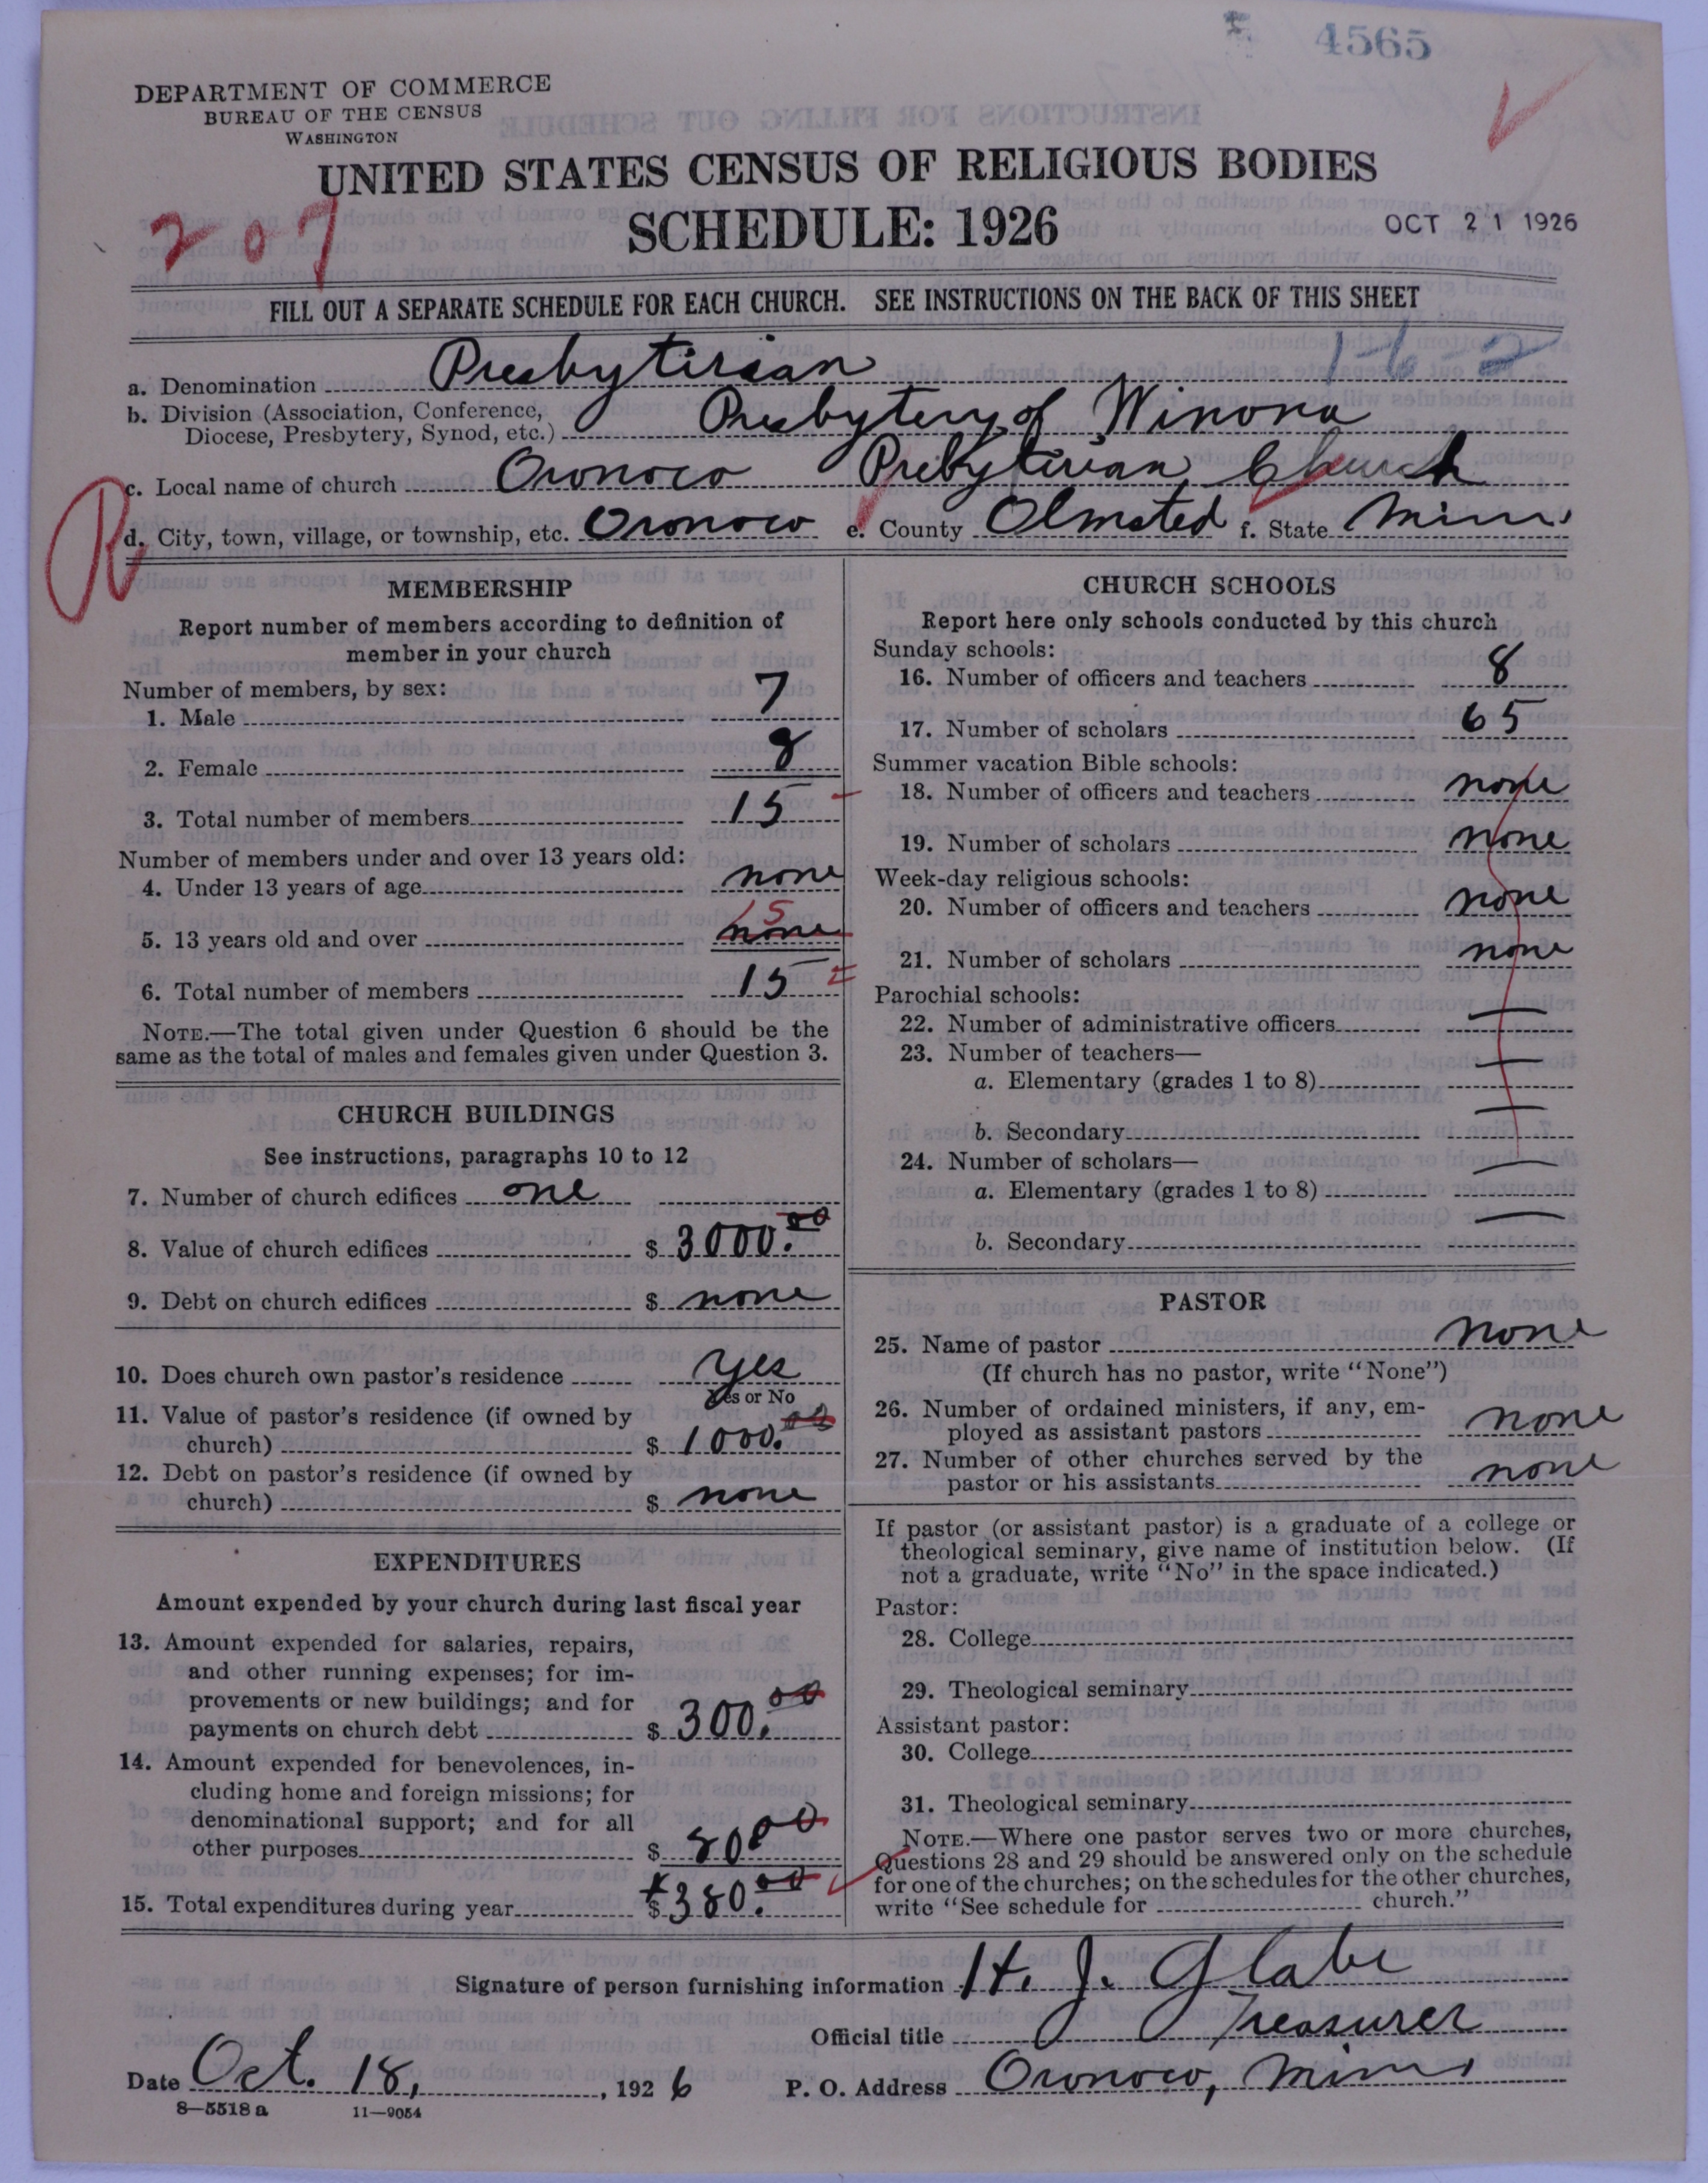 4565
DEPARTMENT OF COMMERCE
BUREAU OF THE CENSUS
WASHINGTON
UNITED STATES CENSUS OF RELIGIOUS BODIES
207
SCHEDULE: 1926
OCT 21 1926
FILL OUT A SEPARATE SCHEDULE FOR EACH CHURCH. SEE INSTRUCTIONS ON THE BACK OF THIS SHEET
1-6-2
a. Denomination Presbytirian
b. Division (Association, Conference,
Diocese, Presbytery, Synod, etc.) Presbytery of Winona
c. Local name of church Oronoco Prebytirian Church
R
d. City, town, village, or township, etc. Oronoco e. County Olmsted f. State Minn
MEMBERSHIP
Report number of members according to definition of
member in your church
Number of members, by sex:
1. Male 7
2. Female 8
3. Total number of members 15
Number of members under and over 13 years old:
4. Under 13 years of age none
15
5. 13 years old and over none
6. Total number of members 15
NOTE.—The total given under Question 6 should be the
same as the total of males and females given under Question 3.
CHURCH BUILDINGS
See instructions, paragraphs 10 to 12
7. Number of church edifices one
8. Value of church edifices $ 3000.00
9. Debt on church edifices $ none
10. Does church own pastor's residence yes
Yes or No
11. Value of pastor's residence (if owned by
church) $ 1000.00
12. Debt on pastor's residence (if owned by
church) $ none
EXPENDITURES
Amount expended by your church during last fiscal year
13. Amount expended for salaries, repairs,
and other running expenses; for im-
provements or new buildings; and for
payments on church debt $ 300.00
14. Amount expended for benevolences, in-
cluding home and foreign missions; for
denominational support; and for all
other purposes $ 80.00
15. Total expenditures during year $ 380.00
CHURCH SCHOOLS
Report here only schools conducted by this church
Sunday schools:
16. Number of officers and teachers 8
17. Number of scholars 65
Summer vacation Bible schools:
18. Number of officers and teachers none
19. Number of scholars none
Week-day religious schools:
20. Number of officers and teachers none
21. Number of scholars none
Parochial schools:
22. Number of administrative officers —
23. Number of teachers—
a. Elementary (grades 1 to 8) —
b. Secondary —
24. Number of scholars—
a. Elementary (grades 1 to 8) —
b. Secondary —
PASTOR
25. Name of pastor none
(If church has no pastor, write "None")
26. Number of ordained ministers, if any, em-
ployed as assistant pastors none
27. Number of other churches served by the
pastor or his assistants none
If pastor (or assistant pastor) is a graduate of a college or
theological seminary, give name of institution below. (If
not a graduate, write "No" in the space indicated.)
Pastor:
28. College
29. Theological seminary
Assistant pastor:
30. College
31. Theological seminary
NOTE.—Where one pastor serves two or more churches,
Questions 28 and 29 should be answered only on the schedule
for one of the churches; on the schedules for the other churches,
write "See schedule for church."
Signature of person furnishing information H. J. Glabe
Official title Treasurer
Date Oct. 18, 1926 P. O. Address Oronoco, Minn
8—5518 a 11—9054